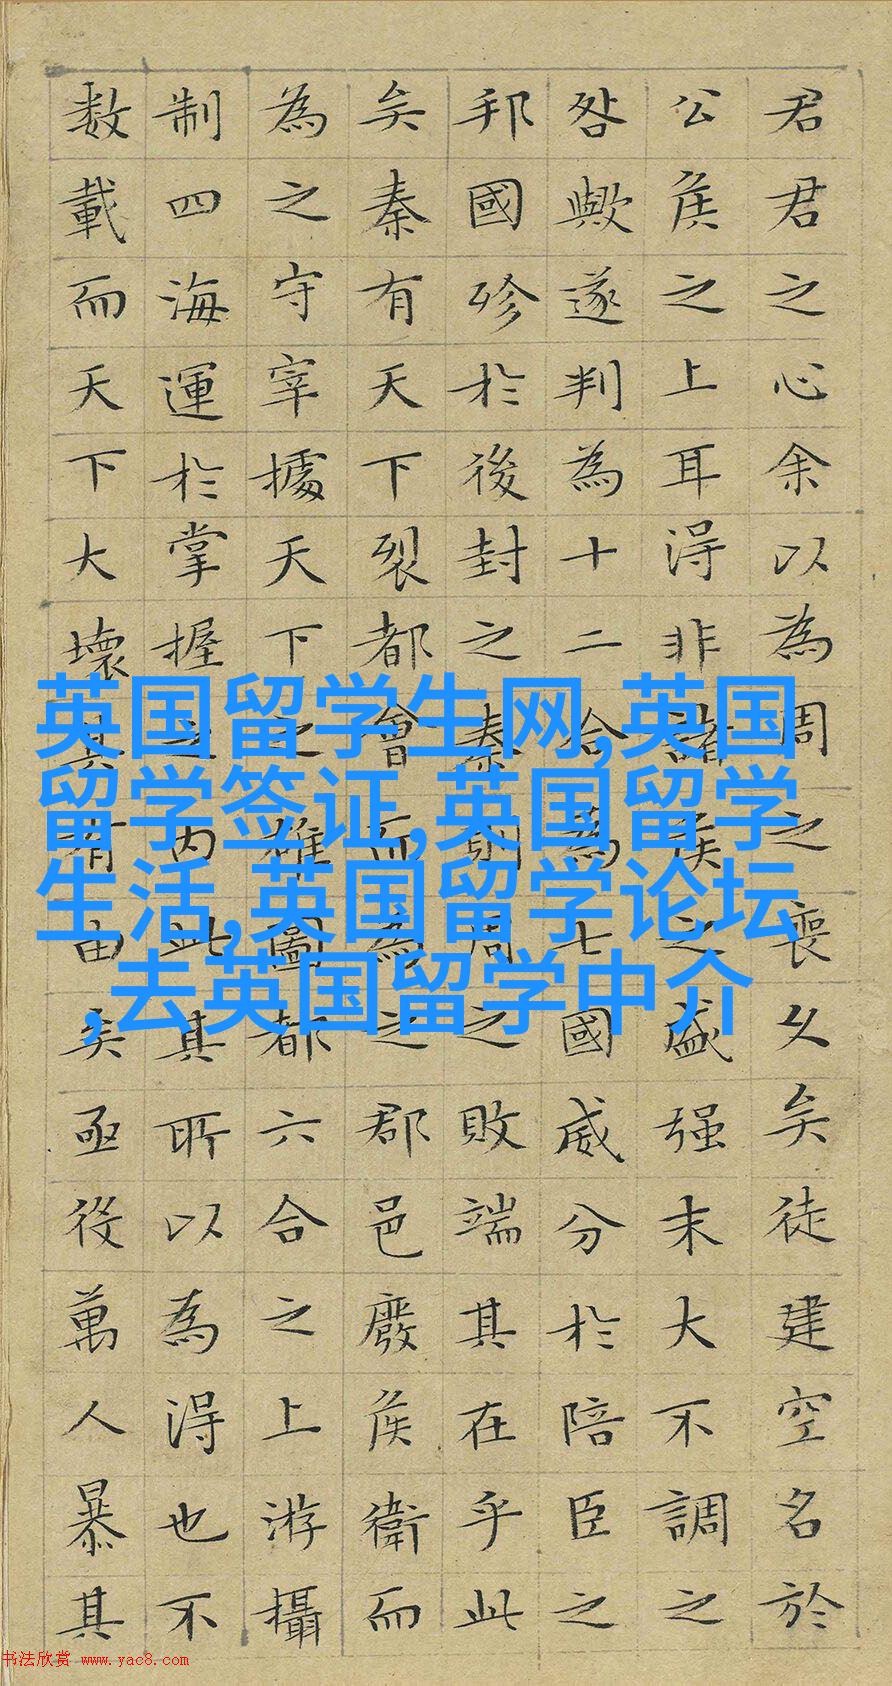 君君之心余以為周之喪久矣徒建空名於
公侯之上耳得非諸侯之盛强末大不調之
咎歟遂判為十二合為七國威分於陪臣之
邦國殄於後封之秦則周之敗端其在乎此
矣秦有天下裂都會而為之郡邑廢侯衛而
為之守宰據天下之雄圖都六合之上游攝
制四海運於掌握之内此其所以為得也不
数載而天下大壞其有由矣亟役萬人暴其
英国留学生网,英国
留学签证,英国留学
生活,英国留学论坛
,去英国留学中介
书法欣赏 www.yac8.com